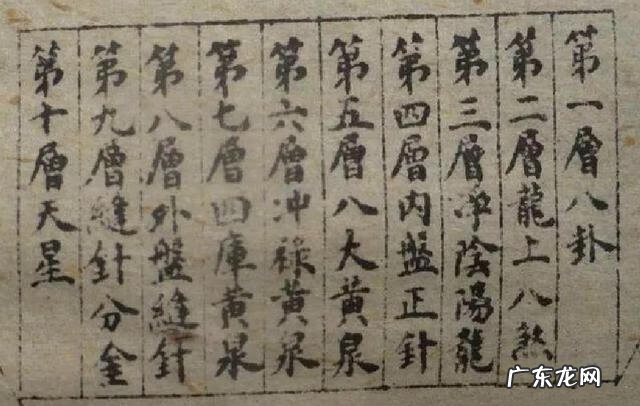 第一層八卦
第二層龍上八煞
第三層淨陰陽龍
第四層內盤正針
第五層八大黄泉
第六層冲祿黄泉
第七層四庫黄泉
第八層外盤縫針
第九層縫針分金
第十層天星
广东龙网